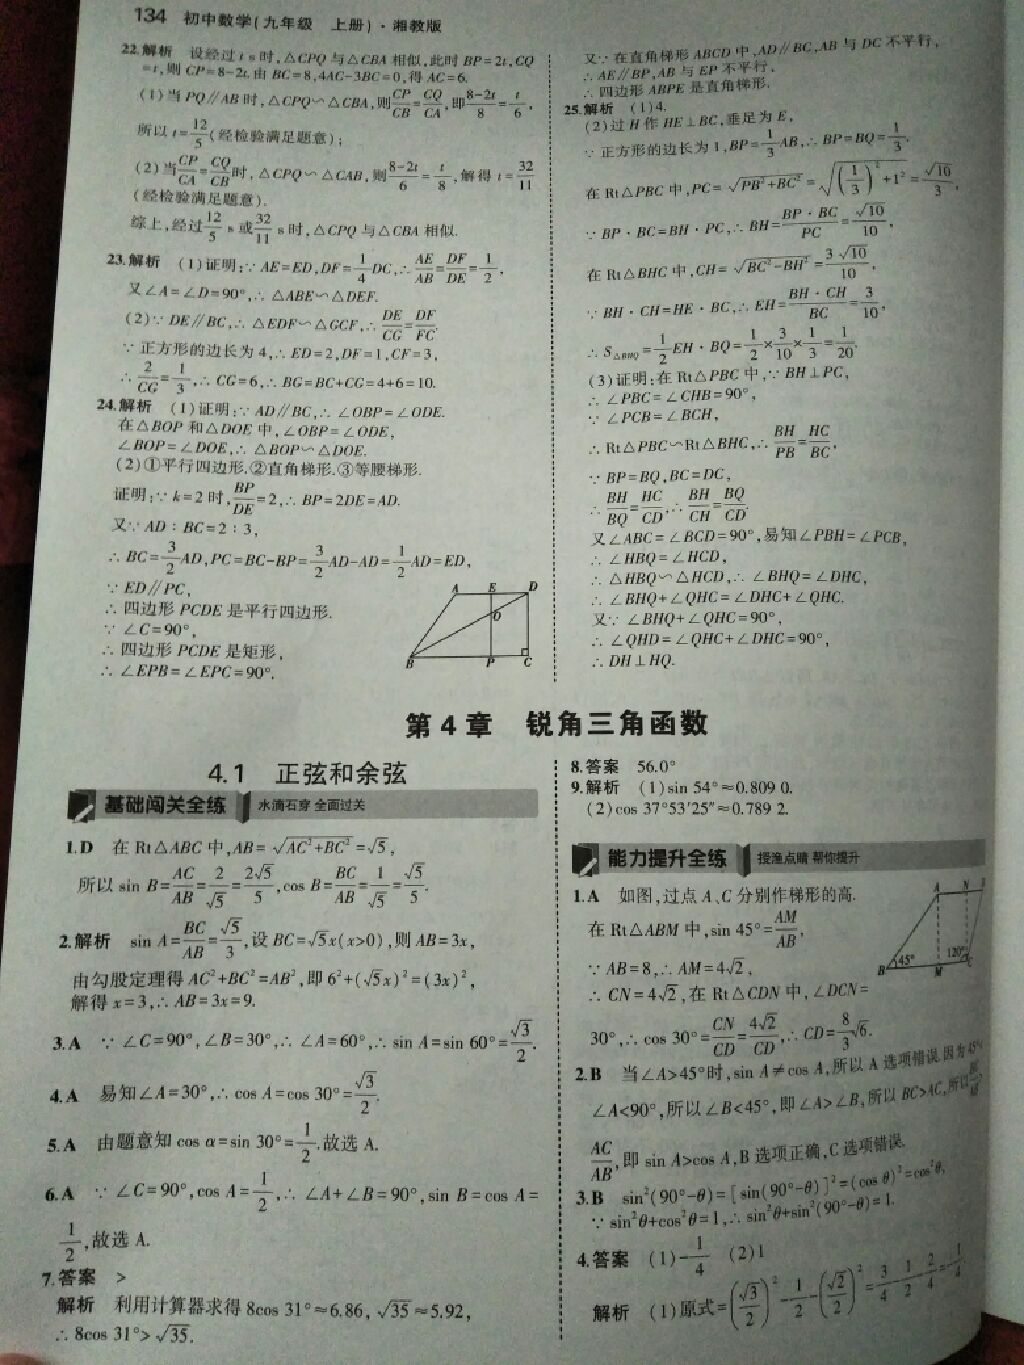 134 初中数学(九年级 上册)·湘教版
22.解析 设经过 t s时,△CPQ与△CBA相似,此时BP=2t,CQ
=t,则CP=8-2t.由BC=8,4AC-3BC=0,得AC=6.
(1)当PQ∥AB时,△CPQ∽△CBA,则CP/CB=CQ/CA,即(8-2t)/8=t/6,
所以t=12/5(经检验满足题意);
(2)当CP/CA=CQ/CB时,△CPQ∽△CAB,则(8-2t)/6=t/8,解得t=32/11
(经检验满足题意).
综上,经过12/5 s或32/11 s时,△CPQ与△CBA相似.
23.解析 (1)证明:∵AE=ED,DF=1/4DC,∴AE/AB=DF/DE=1/2,
又∠A=∠D=90°,∴△ABE∽△DEF.
(2)∵DE∥BC,∴△EDF∽△GCF,∴DE/CG=DF/FC.
∵正方形的边长为4,∴ED=2,DF=1,CF=3,
∴2/CG=1/3,∴CG=6,∴BG=BC+CG=4+6=10.
24.解析 (1)证明:∵AD∥BC,∴∠OBP=∠ODE.
在△BOP和△DOE中,∠OBP=∠ODE,
∠BOP=∠DOE,∴△BOP∽△DOE.
(2)①平行四边形.②直角梯形.③等腰梯形.
证明:∵k=2时,BP/DE=2,∴BP=2DE=AD.
又∵AD∶BC=2∶3,
∴BC=3/2AD,PC=BC-BP=3/2AD-AD=1/2AD=ED,
∵ED∥PC,
∴四边形PCDE是平行四边形.
∵∠C=90°,
∴四边形PCDE是矩形,
∴∠EPB=∠EPC=90°.
A E D
O
B P C
又∵在直角梯形ABCD中,AD∥BC,AB与DC不平行,
∴AE∥BP,AB与EP不平行,
∴四边形ABPE是直角梯形.
25.解析 (1)4.
(2)过H作HE⊥BC,垂足为E,
∵正方形的边长为1,BP=1/3AB,∴BP=BQ=1/3.
在Rt△PBC中,PC=√(PB²+BC²)=√((1/3)²+1²)=√10/3,
∵BP·BC=BH·PC,∴BH=BP·BC/PC=√10/10,
在Rt△BHC中,CH=√(BC²-BH²)=3√10/10,
∵BH·CH=HE·BC,∴EH=BH·CH/BC=3/10,
∴S△BHQ=1/2EH·BQ=1/2×3/10×1/3=1/20.
(3)证明:在Rt△PBC中,∵BH⊥PC,
∴∠PBC=∠CHB=90°,
∵∠PCB=∠BCH,
∴Rt△PBC∽Rt△BHC,∴BH/PB=HC/BC.
∵BP=BQ,BC=DC,
∴BH/BQ=HC/CD,∴BH/CH=BQ/CD.
又∠ABC=∠BCD=90°,易知∠PBH=∠PCB,
∴∠HBQ=∠HCD,
∴△HBQ∽△HCD,∴∠BHQ=∠DHC,
∴∠BHQ+∠QHC=∠DHC+∠QHC.
又∵∠BHQ+∠QHC=90°,
∴∠QHD=∠QHC+∠DHC=90°,
∴DH⊥HQ.
第4章 锐角三角函数
4.1 正弦和余弦
基础闯关全练 水滴石穿 全面过关
1.D 在Rt△ABC中,AB=√(AC²+BC²)=√5,
所以sin B=AC/AB=2/√5=2√5/5,cos B=BC/AB=1/√5=√5/5.
2.解析 sin A=BC/AB=√5/3,设BC=√5x(x>0),则AB=3x,
由勾股定理得AC²+BC²=AB²,即6²+(√5x)²=(3x)²,
解得x=3,∴AB=3x=9.
3.A ∵∠C=90°,∠B=30°,∴∠A=60°,∴sin A=sin 60°=√3/2.
4.A 易知∠A=30°,∴cos A=cos 30°=√3/2.
5.A 由题意知cos α=sin 30°=1/2.故选A.
6.A ∵∠C=90°,cos A=1/2,∴∠A+∠B=90°,sin B=cos A=
1/2,故选A.
7.答案 >
解析 利用计算器求得8cos 31°≈6.86,√35≈5.92,
∴8cos 31°>√35.
8.答案 56.0°
9.解析 (1)sin 54°≈0.809 0.
(2)cos 37°53′25″≈0.789 2.
能力提升全练 授渔点睛 帮你提升
1.A 如图,过点A、C分别作梯形的高.
在Rt△ABM中,sin 45°=AM/AB,
∵AB=8,∴AM=4√2,
∴CN=4√2,在Rt△CDN中,∠DCN=
30°,∴cos 30°=CN/CD=4√2/CD,∴CD=8/3√6.
A N
45° 120°
B M C
2.B 当∠A>45°时,sin A≠cos A,所以A选项错误.因为45°<
∠A<90°,所以∠B<45°,即∠A>∠B,所以BC>AC,所以BC/AB>
AC/AB,即sin A>cos A,B选项正确,C选项错误.
3.B sin²(90°-θ)=[sin(90°-θ)]²=(cos θ)²=cos²θ,
∵sin²θ+cos²θ=1,∴sin²θ+sin²(90°-θ)=1.
4.答案 (1)-1/4 (2)1
解析 (1)原式=(√3/2)²-1/2-(√2/2)²=3/4-1/2-2/4=-1/4.